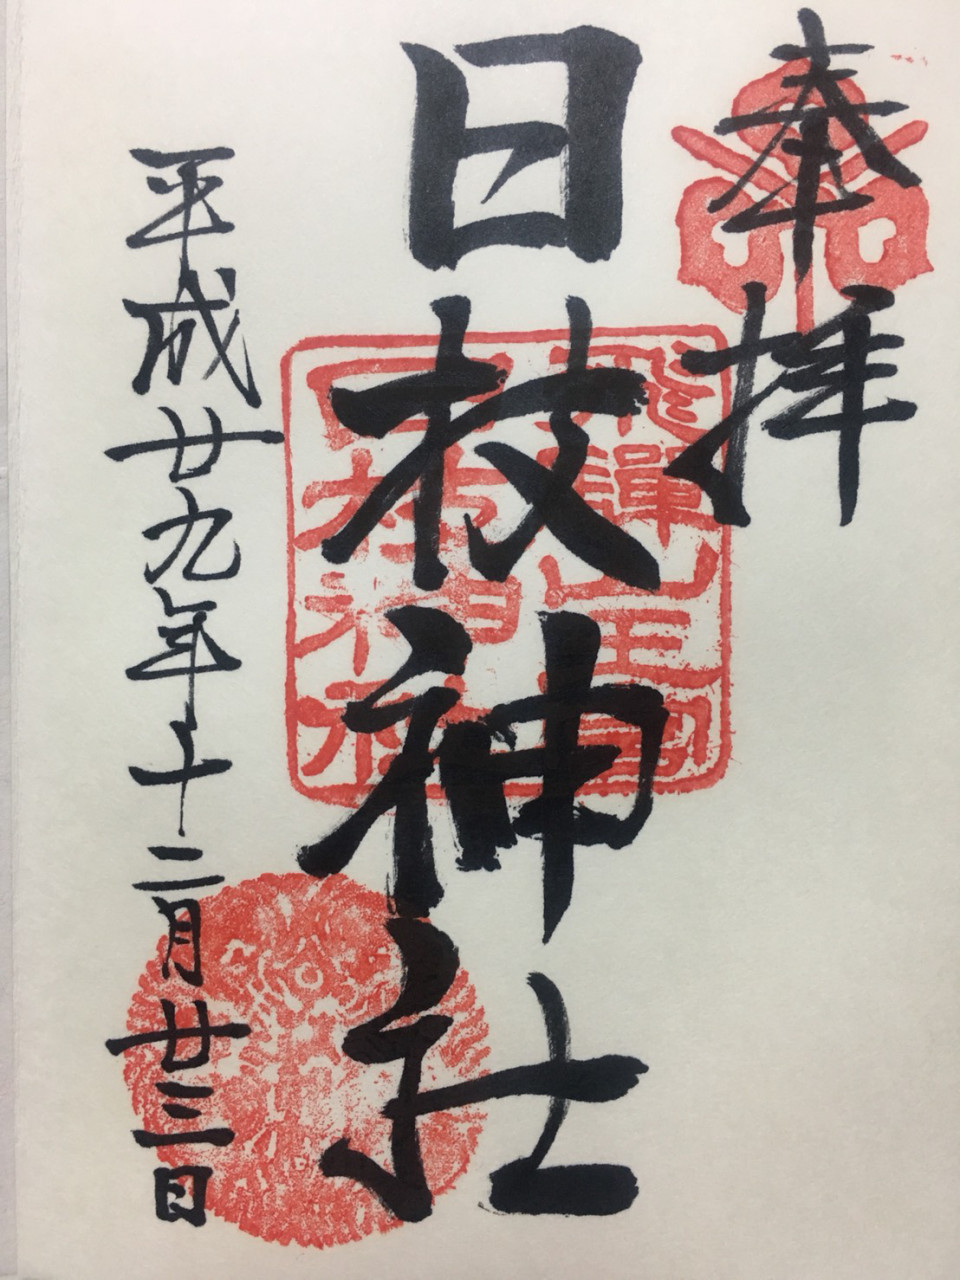 奉拝
日枝神社
平成廿九年十二月廿三日
飛驒山王宮
日枝神社